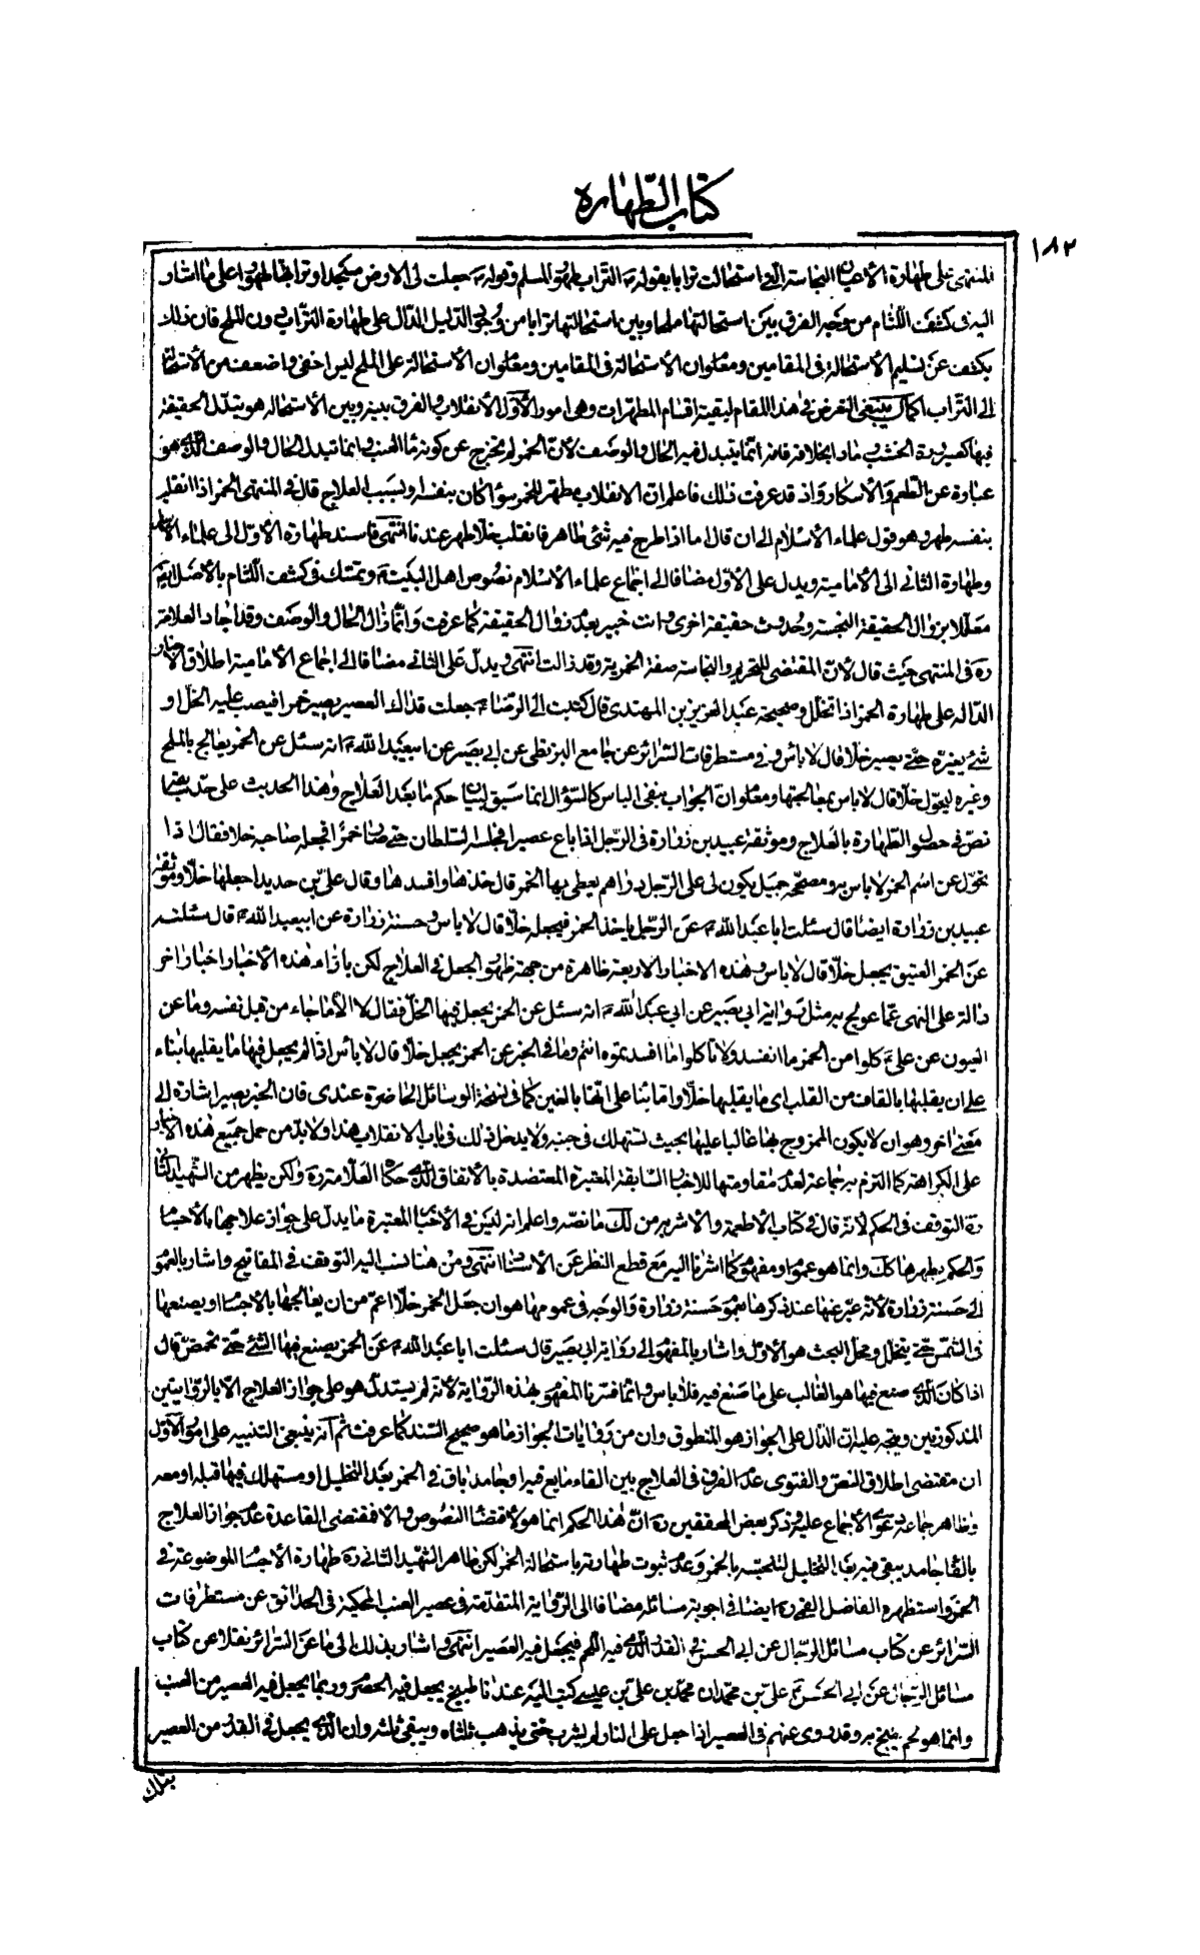 كتاب الطهارة
١٨٢
المنتهى على طهارة الأعيان النجاسة التي استحالت ترابا بقوله ع التراب طهور المسلم وقوله ع جعلت لي الارض مسجدا وترابها طهورا على ما اشار
اليه في كشف اللثام من توجيه الفرق بين استحالتها ملحا وبين استحالتها ترابا من وجود الدليل الدال على طهارة التراب دون الملح فان ذلك
يكشف عن تسليم الاستحالة في المقامين ومعلوم ان الاستحالة في المقامين ومعلوم ان الاستحالة على الملح ليس اخفى واضعف من الاستحالة
الى التراب اكمال ينبغي التعرض في هذا المقام لبقية اقسام المطهرات وهي امور الأول الأنقلاب والفرق بينه وبين الاستحالة هو تبدل الحقيقة
فيها كصيرورة الخشب رمادا بخلافه فانه انما يتبدل فيه الحال والوصف لان الخمر لم يخرج عن كونه ماء العنب وانما تبدل الحال والوصف الذي هو
عبارة عن الطعم والاسكار واذ قد عرفت ذلك فاعلم ان الانقلاب مطهر للخمر سواء كان بنفسه او بسبب العلاج قال في المنتهى الخمر اذا انقلب
بنفسه طهر وهو قول علماء الأسلام الى ان قال اما اذا طرح فيه شئ طاهر فانقلب خلا طهر عندنا انتهى فاسند طهارة الأول الى علماء الأسلام
وطهارة الثاني الى الأمامية ويدل على الأول مضافا الى اجماع علماء الأسلام نصوص اهل البيت ع وتمسك في كشف اللثام بالأصل ايضا
معللا بزوال الحقيقة النجسة وحدوث حقيقة اخرى وانت خبير بعدم زوال الحقيقة كما عرفت وانما زال الحال والوصف وقد اجاد العلامة
ره في المنتهى حيث قال لان المقتضى للتحريم والنجاسة صفة الخمرية وقد زالت انتهى ويدل على الثاني مضافا الى اجماع الأمامية اطلاق الأخبار
الدالة على طهارة الخمر اذا تخلل وصحيحة عبد العزيز بن المهتدي قال كتبت الى الرضا ع جعلت فداك العصير يصير خمرا فيصب عليه الخل او
شئ يغيره حتى يصير خلا قال لا بأس وفي مستطرفات السرائر عن جامع البزنطي عن ابي بصير عن ابيعبد الله ع انه سئل عن الخمر يعالج بالملح
وغيره ليحول خلا قال لا باس بمعالجتها ومعلوم ان الجواب بنفي الباس كالسؤال انما سيق لبيان حكم ما بعد العلاج وهذا الحديث على حدته
نص في حصول الطهارة بالعلاج وموثقة عبيد بن زرارة في الرجل اذا باع عصيرا فحبسه السلطان حتى صار خمرا فجعله صاحبه خلا فقال اذا
تحول عن اسم الخمر لا باس به ومصححة جميل يكون لي على الرجل دراهم يعطي بها الخمر قال خذها وافسدها وقال علي بن حديد اجعلها خلا وموثقة
عبيد بن زرارة ايضا قال سئلت ابا عبد الله ع عن الرجل ياخذ الخمر فيجعله خلا قال لا باس وحسنة زرارة عن ابيعبد الله ع قال سئلته
عن الخمر العتيق يجعل خلا قال لا باس وهذه الاخبار الاربعة ظاهرة من جهة ظهور الجعل في العلاج لكن بازاء هذه الأخبار اخبارا اخر
دالة على النهى عما عولج به مثل رواية ابي بصير عن ابي عبد الله ع انه سئل عن الخمر يجعل فيها الخل فقال لا الأ ما جاء من قبل نفسه وما عن
العيون عن علي ع كلوا من الخمر ما انفسد ولا تاكلوا ما افسدتموه انتم وما في الخبر عن الخمر يجعل خلا قال لا بأس اذا لم يجعل فيها ما يقلبها بناء
على ان يقلبها بالقاف من القلب اى ما يقلبها خلا واما بناء على انها بالغين كما في نسخة الوسائل الحاضرة عندى فان الخبر يصير اشارة الى
معنى اخر وهو ان لا يكون الممزوج بها غالبا عليها بحيث تستهلك في جنبه ولا يدخل ذلك في باب الانقلاب هذا ولا بد من حمل جميع هذه الأخبار
على الكراهة كما التزم به جماعة لعدم مقاومتها للاخبار السابقة المعتبرة المعتضدة بالأتفاق الذي حكاه العلامة ره ولكن يظهر من الشهيد الثاني
ره التوقف في الحكم لأنه قال في كتاب الأطعمة والأشربة من لك ما نصه واعلم انه ليس في الأخبار المعتبرة ما يدل على جواز علاجها بالأجسام
والحكم بطهرها كك وانما هو عموم او مفهوم كما اشرنا اليه مع قطع النظر عن الأسناد انتهى ومن هنا نسب اليه التوقف في المفاتيح واشار بالعموم
الى حسنة زرارة لأنه عبر عنها عند ذكرها بعموم حسنة زرارة والوجه في عمومها هو ان جعل الخمر خلا اعم من ان يعالجها بالأجسام او يصنعها
في الشمس حتى يتخلل ومحل البحث هو الأول واشار بالمفهوم الى رواية ابي بصير قال سئلت ابا عبد الله ع عن الخمر يصنع فيها الشئ حتى تحمض قال
اذا كان الذي صنع فيها هو الغالب على ما صنع فيه فلا باس وانما فسرنا المفهوم بهذه الرواية لأنه لم يستدل هو على جواز العلاج الا بالروايتين
المذكورتين ويتجه عليه ان الدال على الجواز هو المنطوق وان من روايات الجواز ما هو صحيح السند كما عرفت ثم انه ينبغي التنبيه على امور الأول
ان مقتضى اطلاق النص والفتوى عدم الفرق في العلاج بين القاء مايع فيه او جامد باق في الخمر بعد التخليل او مستهلك فيها قبله او معه
وظاهر جماعة دعوى الأجماع عليه وذكر بعض المحققين ره ان هذا الحكم انما هو لأقتضاء النصوص والا فمقتضى القاعدة عدم جواز العلاج
بالقاء جامد يبقى فيه بعد التخليل لتنجسه بالخمر وعدم ثبوت طهارته باستحالة الخمر لكن ظاهر الشهيد الثاني ره طهارة الأجسام الموضوعة في
الخمر واستظهره الفاضل القمي ره ايضا في اجوبة مسائله مضافا الى الرواية المتقدمة في عصير العنب المحكية في الحدائق عن مستطرفات
السرائر عن كتاب مسائل الرجال عن ابي الحسن ع في القدر الذي فيه اللحم فيجعل فيه العصير انتهى واشار بذلك الى ما عن السرائر نقلا عن كتاب
مسائل الرجال عن ابي الحسن ع علي بن محمد ان محمد بن علي بن عيسى كتب اليه عندنا طبيخ يجعل فيه الحصرم وربما يجعل فيه العصير من العنب
وانما هو لحم يطبخ به وقد روى عنهم في العصير اذا جعل على النار لم يشرب حتى يذهب ثلثاه ويبقى ثلثه وان الذي يجعل في القدر من العصير
بتلك